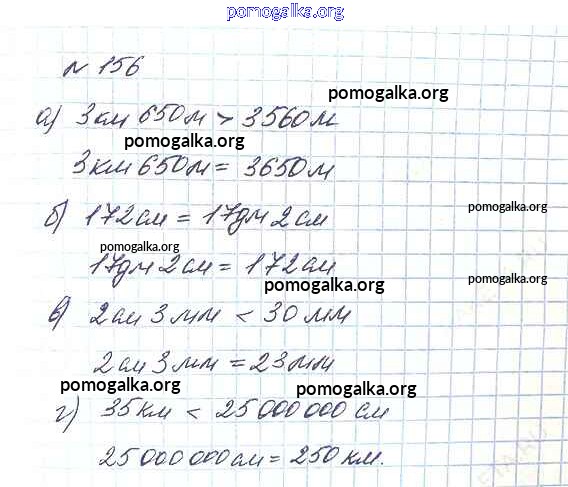 pomogalka.org
№ 156
а) 3км 650м > 3560м
pomogalka.org
pomogalka.org
3км 650м = 3650м
б) 172см = 17дм 2см
pomogalka.org
pomogalka.org
17дм 2см = 172см
pomogalka.org
pomogalka.org
в) 2см 3мм < 30мм
2см 3мм = 23мм
pomogalka.org
pomogalka.org
г) 35км < 25 000 000 см
25 000 000см = 250 км.